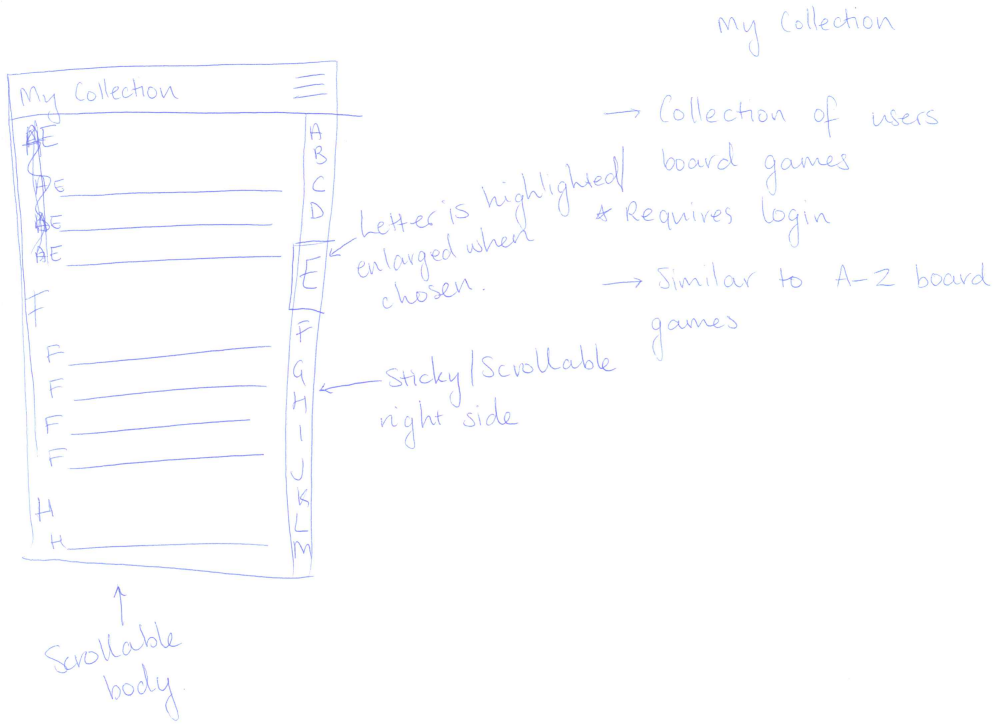 My Collection
My Collection
E
E
E
E
F
F
F
F
F
H
H
A
B
C
D
E
F
G
H
I
J
K
L
M
Letter is highlighted/
enlarged when
chosen.
Sticky/Scrollable
right side
Scrollable
body.
→ Collection of users
board games
* Requires login
→ Similar to A-Z board
games